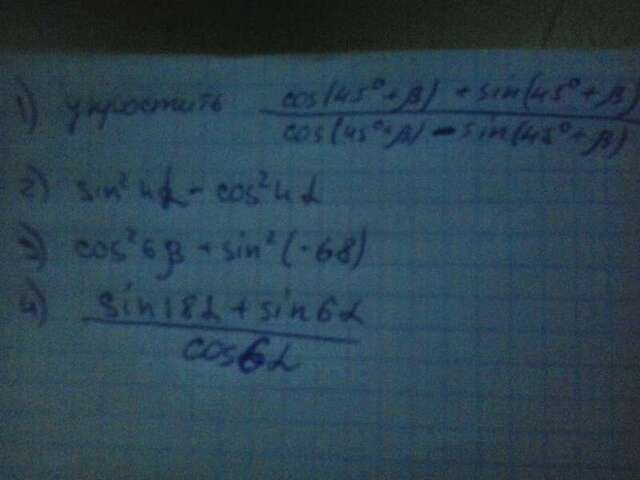 1) упростить cos(45°+β) + sin(45°+β)
cos(45°+β) - sin(45°+β)
2) sin²4α - cos²4α
3) cos²6β + sin²(-6β)
4) sin18α + sin6α
cos6α